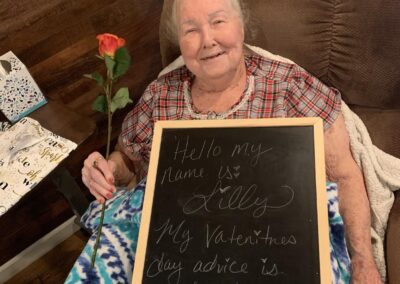 Hello my
name is
Lilly
My Vatenitnes
day advice is